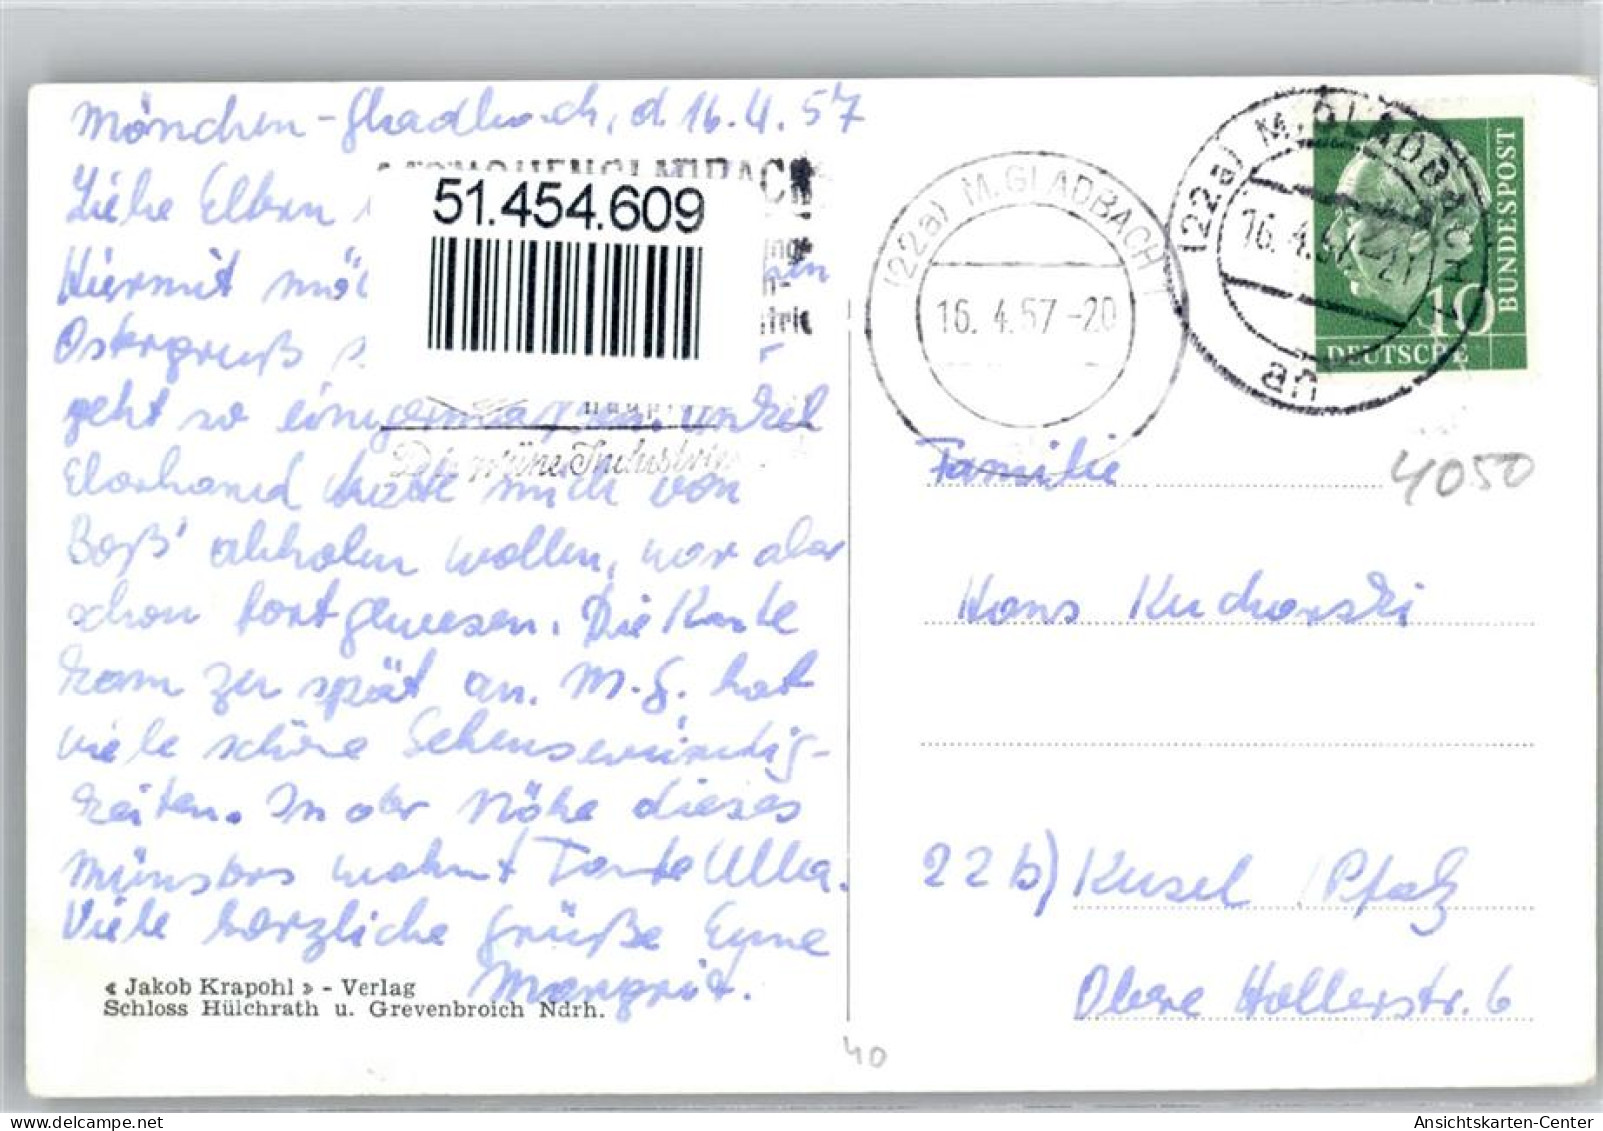 Mönchen-Gladbach, d. 16.4.57
Liebe Eltern
Hiermit
Ostergruß
geht so einigermaßen. Onkel
hatte mich von
abholen wollen, war aber
schon fortgewesen. Die Karte
kam zu spät an. M.G. hat
viele schöne Sehenswürdig-
keiten. In der Nähe dieses
Münsters wohnt Tante Ulla.
Viele herzliche Grüße Eure
Margrit.
51.454.609
Die grüne Industrie
« Jakob Krapohl » - Verlag
Schloss Hülchrath u. Grevenbroich Ndrh.
(22a) M.GLADBACH 1
16.4.57-20
(22a) M.GLADBACH 1
16.4.57-21
an
DEUTSCHE
BUNDESPOST
10
4050
Familie
Hans Kucharski
22b) Kusel / Pfalz
Obere Hollerstr. 6
40
Ansichtskarten-Center